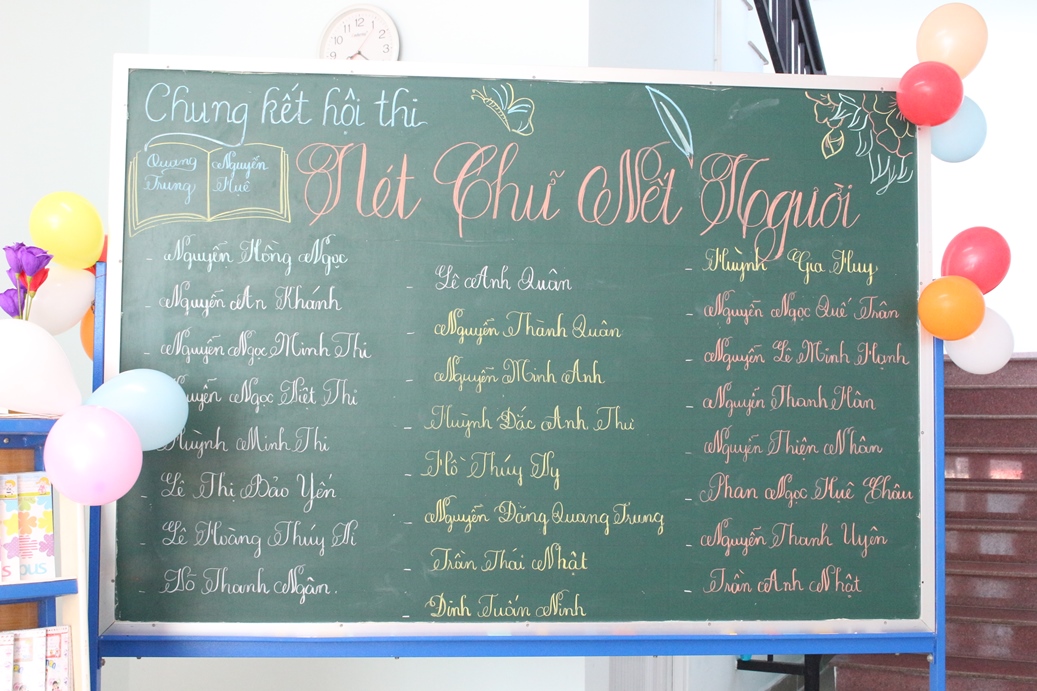 Chung kết hội thi
Quang Trung
Nguyễn Huệ
Nét Chữ Nết Người
- Nguyễn Hồng Ngọc
- Nguyễn An Khánh
- Nguyễn Ngọc Minh Thi
Nguyễn Ngọc Việt Thi
Huỳnh Minh Thi
- Lê Thị Bảo Yến
- Lê Hoàng Thúy Vi
- Đỗ Thanh Ngân.
- Lê Anh Quân
- Nguyễn Thành Quân
- Nguyễn Minh Anh
- Huỳnh Đắc Anh Thư
- Hồ Thúy Vy
- Nguyễn Đăng Quang Trung
- Trần Thái Nhật
- Đinh Tuấn Ninh
- Huỳnh Gia Huy
- Nguyễn Ngọc Quế Trân
- Nguyễn Lê Minh Hạnh
- Nguyễn Thanh Hân
- Nguyễn Thiện Nhân
- Phan Ngọc Huê Châu
- Nguyễn Thanh Uyên
- Trần Anh Nhật